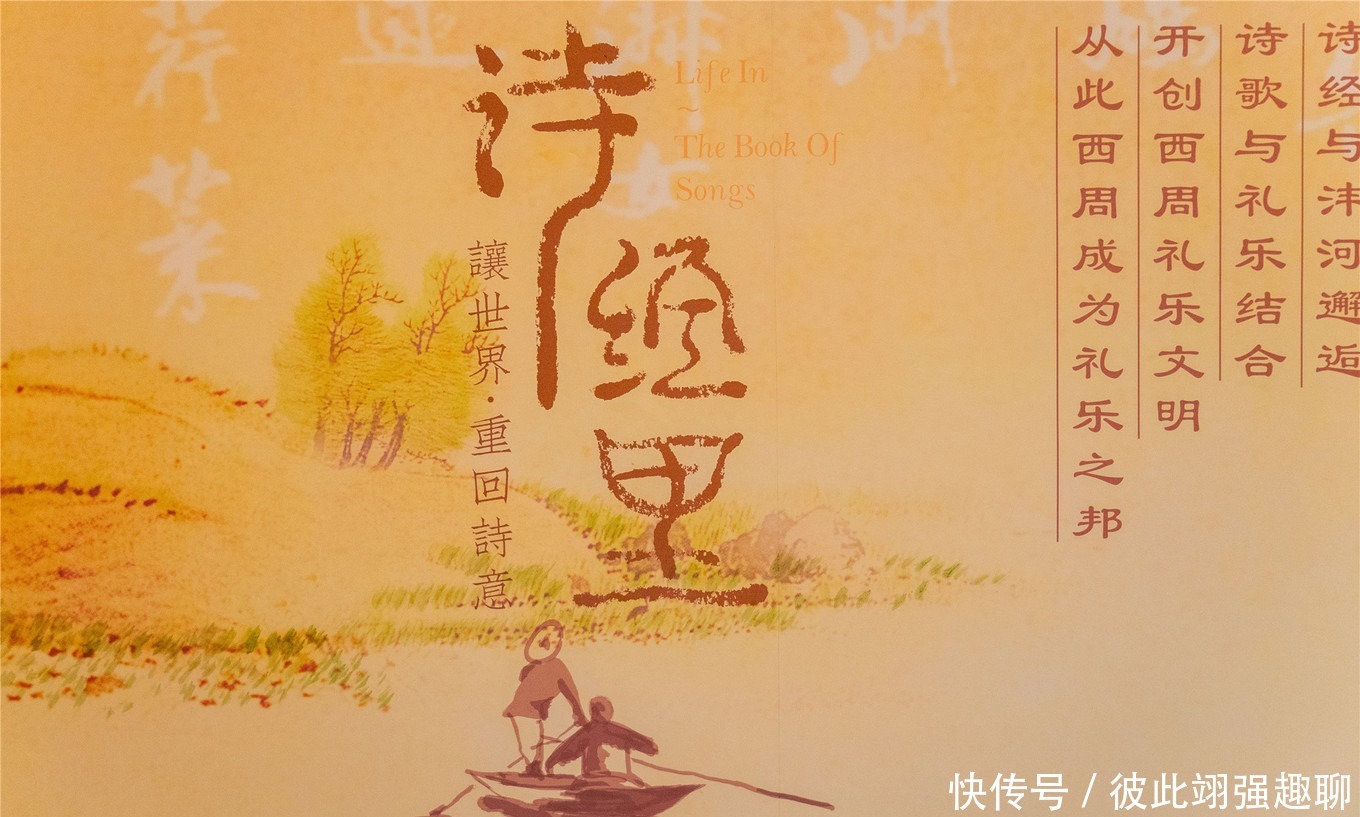 诗经与沣河邂逅
诗歌与礼乐结合
开创西周礼乐文明
从此西周成为礼乐之邦
诗经里
Life In
~
The Book Of
Songs
讓世界·重回詩意
荇菜
快传号 / 彼此翊强趣聊